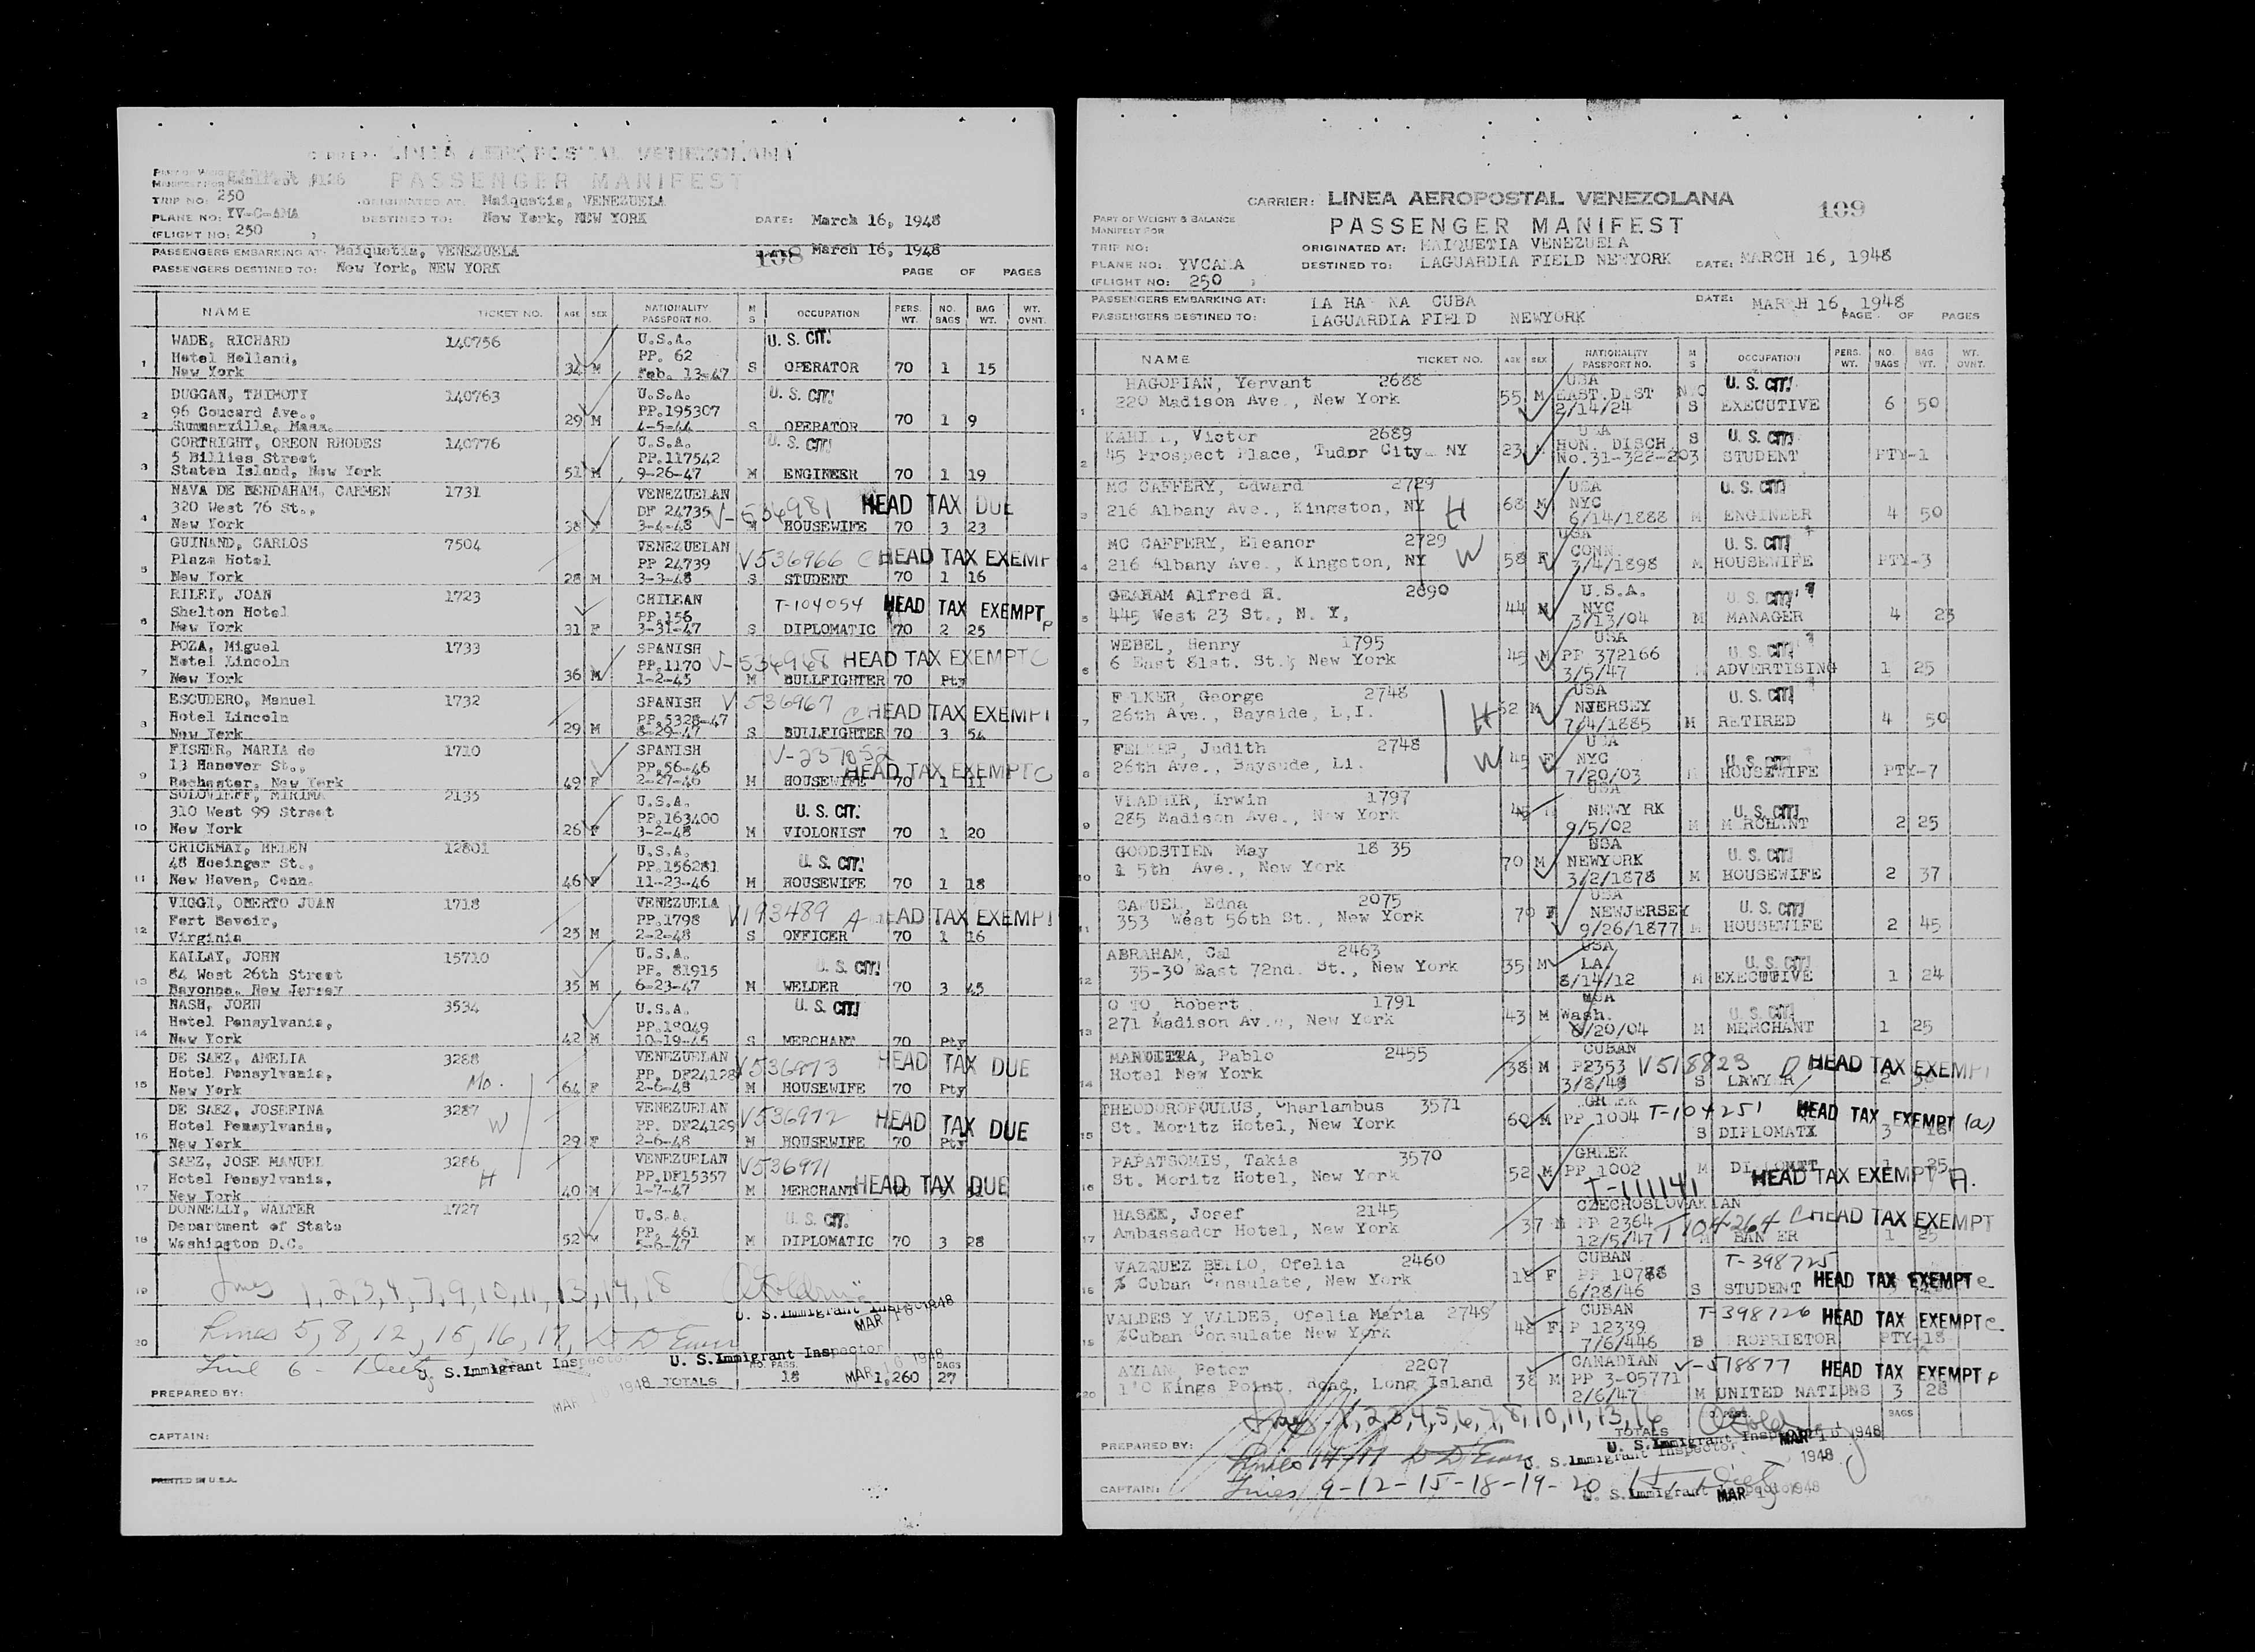 CARRIER: LINEA AEROPOSTAL VENEZOLANA
PASSENGER MANIFEST
MANIFEST FOR Manifest
TRIP NO: 250 ORIGINATED AT: Maiquetia, VENEZUELA
PLANE NO: YV-C-AMA DESTINED TO: New York, NEW YORK DATE: March 16, 1948
(FLIGHT NO: 250 )
PASSENGERS EMBARKING AT: Maiquetia, VENEZUELA 108 March 16, 1948
PASSENGERS DESTINED TO: New York, NEW YORK PAGE OF PAGES
NAME TICKET NO. AGE SEX NATIONALITY PASSPORT NO. M S OCCUPATION PERS. WT. NO. BAGS BAG WT. WT. OVNT.
WADE, RICHARD 140756 U.S.A. U. S. CIT!
Hotel Holland, PP. 62
1 New York 34 M Feb. 13-47 S OPERATOR 70 1 15
DUGGAN, THIMOTY 140763 U.S.A. U. S. CIT!
96 Concard Ave., PP.195307
2 Summerville, Mass. 29 M 4-5-44 S OPERATOR 70 1 9
CORTRIGHT, OREON RHODES 140776 U.S.A. U. S. CIT!
5 Billies Street PP.117542
3 Staten Island, New York 51 M 9-26-47 M ENGINEER 70 1 19
NAVA DE BENDAHAM, CARMEN 1731 VENEZUELAN
320 West 76 St., DF 24735 V-534981 HEAD TAX DUE
4 New York 38 F 3-4-48 M HOUSEWIFE 70 3 23
GUINAND, CARLOS 7504 VENEZUELAN
Plaza Hotel PP 24739 V536966 C HEAD TAX EXEMP
5 New York 28 M 3-3-48 S STUDENT 70 1 16
RILEY, JOAN 1723 CHILEAN
Shelton Hotel PP.156 T-104054 HEAD TAX EXEMPT P
6 New York 31 F 3-31-47 S DIPLOMATIC 70 2 25
POZA, Miguel 1733 SPANISH
Hotel Lincoln PP.1170 V-534968 HEAD TAX EXEMPT C
7 New York 36 M 1-2-45 M BULLFIGHTER 70 Pty
ESCUDERO, Manuel 1732 SPANISH V 536967
Hotel Lincoln PP.5328-47 C HEAD TAX EXEMPT
8 New York 29 M 8-29-47 S BULLFIGHTER 70 3 54
FISHER, MARIA de 1710 SPANISH V-237052
13 Hanover St., PP.56-46 HEAD TAX EXEMPT C
9 Rochester, New York 49 F 2-27-46 M HOUSEWIFE 70 1 11
SOLOVIEFF, MIRIMA 2135 U.S.A. U. S. CIT.
310 West 99 Street PP.163400
10 New York 26 F 3-2-48 M VIOLONIST 70 1 20
CRICKMAY, HELEN 12801 U.S.A. U. S. CIT!
48 Hueinger St., PP.156281
11 New Haven, Conn. 46 F 11-23-46 M HOUSEWIFE 70 1 18
VIGGI, OBERTO JUAN 1718 VENEZUELA
Fort Bevoir, PP.1798 V193489 A HEAD TAX EXEMPT
12 Virginia 23 M 2-2-48 S OFFICER 70 1 16
KALLAY, JOHN 15710 U.S.A. U. S. CIT!
84 West 26th Street PP. 81915
13 Bayonne, New Jersey 35 M 6-23-47 M WELDER 70 3 45
NASH, JOHN 3534 U.S.A. U. S. CIT!
Hotel Pensylvania, PP.18049
14 New York 42 M 10-19-45 S MERCHANT 70 Pty
DE SAEZ, AMELIA 3288 VENEZUELAN
Hotel Pensylvania, Mo. PP. DF24128 V536973 HEAD TAX DUE
15 New York 64 F 2-6-48 M HOUSEWIFE 70 Pty
DE SAEZ, JOSEFINA 3287 VENEZUELAN
Hotel Pensylvania, W PP. DF24129 V536972 HEAD TAX DUE
16 New York 29 F 2-6-48 M HOUSEWIFE 70 Pty
SAEZ, JOSE MANUEL 3286 VENEZUELAN V536971
Hotel Pensylvania, H PP.DF15357
17 New York 40 M 1-7-47 M MERCHANT HEAD TAX DUE
DONNELLY, WALTER 1727 U.S.A. U. S. CIT.
Department of State PP. 461
18 Washington D.C. 52 M 5-6-47 M DIPLOMATIC 70 3 28
19 Lines 1,2,3,4,7,9,10,11,13,14,18
U. S. Immigrant Inspector MAR 16 1948
20 Lines 5, 8, 12, 15, 16, 17,
Line 6 - U. S. Immigrant Inspector U. S. Immigrant Inspector
MAR 16 1948 TOTALS NO. PASS. 18 MAR 16 1948 1,260 BAGS 27
PREPARED BY:
CAPTAIN:
PRINTED IN U.S.A.
CARRIER: LINEA AEROPOSTAL VENEZOLANA 109
PART OF WEIGHT & BALANCE
MANIFEST FOR PASSENGER MANIFEST
TRIP NO: ORIGINATED AT: MAIQUETIA VENEZUELA
PLANE NO: YVCAMA DESTINED TO: LAGUARDIA FIELD NEWYORK DATE: MARCH 16, 1948
(FLIGHT NO: 250 )
PASSENGERS EMBARKING AT: LA HA NA CUBA DATE: MARCH 16, 1948
PASSENGERS DESTINED TO: LAGUARDIA FIELD NEWYORK PAGE OF PAGES
NAME TICKET NO. AGE SEX NATIONALITY PASSPORT NO. M S OCCUPATION PERS. WT. NO. BAGS BAG WT. WT. OVNT.
HAGOPIAN, Yervant 2688 USA U. S. CIT!
220 Madison Ave., New York 55 M EAST.DIST
1 2/14/24 S EXECUTIVE 6 50
Victor 2689 USA S U. S. CIT!
45 Prospect Place, Tudor City NY 23 HON. DISCH
2 No.31-322-203 STUDENT PTY-1
MC CAFFERY, Edward 2729 USA U. S. CIT!
216 Albany Ave., Kingston, NY H 68 M NYC
3 6/14/1888 M ENGINEER 4 50
MC CAFFERY, Eleanor 2729 USA U. S. CIT!
216 Albany Ave., Kingston, NY W 58 F CONN.
4 3/4/1898 M HOUSEWIFE PTY-3
GRAHAM Alfred H. 2690 U.S.A. U. S. CIT!
445 West 23 St., N. Y, 44 M NYC
5 3/13/04 M MANAGER 4 23
WEBEL, Henry 1795 USA U. S. CIT!
6 East 81st. St., New York 45 M PP 372166
6 3/5/47 ADVERTISING 1 25
FELKER, George 2748 USA U. S. CIT!
26th Ave., Bayside, L,I. H 62 M NJERSEY
7 7/4/1885 M RETIRED 4 50
FELKER, Judith 2748 USA
26th Ave., Baysude, Li. W 45 F NYC U. S. CIT!
8 7/20/03 M HOUSEWIFE PTY-7
VLADMIR, Irwin 1797 USA
285 Madison Ave., New York 45 M NEWY RK U. S. CIT!
9 9/5/02 M M RCHANT 2 25
GOODSTIEN May 18 35 USA U. S. CIT!
1 5th Ave., New York 70 M NEWYORK
10 3/2/1878 M HOUSEWIFE 2 37
SAMUEL, Edna 2075 USA
353 West 56th St., New York 70 F NEWJERSEY U. S. CIT!
11 9/26/1877 M HOUSEWIFE 2 45
ABRAHAM, Cal 2463 USA
35-30 East 72nd. St., New York 35 M LA. U. S. CIT!
12 8/14/12 M EXECUTIVE 1 24
O TO, Robert 1791 USA
271 Madison Ave., New York 43 M Wash. U. S. CIT!
13 8/20/04 M MERCHANT 1 25
Pablo 2455 CUBAN
Hotel New York 38 M P2353 V518823 D HEAD TAX EXEMPT
14 3/8/48 S LAWYER 2
THEODOROPOULUS, Charlambus 3571 GREEK
St. Moritz Hotel, New York 60 M PP 1004 T-104251 HEAD TAX EXEMPT (a)
15 S DIPLOMATX 3
PAPATSOMIS, Takis 3570 GREEK
St. Moritz Hotel, New York 52 M PP 1002 M 1 25
16 T-111141 HEAD TAX EXEMPT A.
HASEK, Josef 2145 CZECHOSLOVAKIAN
Ambassador Hotel, New York 37 M PP 2364 T104264 C HEAD TAX EXEMPT
17 12/5/47 BANKER 1 25
VAZQUEZ BELLO, Ofelia 2460 CUBAN T-398725
% Cuban Consulate, New York 18 F PP 10788
18 6/28/46 S STUDENT HEAD TAX EXEMPT c
VALDES Y VALDES, Ofelia Maria 2749 CUBAN T-398726 HEAD TAX EXEMPT c
%Cuban Consulate New York 48 F P 12339
19 7/6/446 S ROPRIETOR PTY-18
AYLAN, Peter 2207 CANADIAN V-518877 HEAD TAX EXEMPT P
20 1 0 Kings Point, Road, Long Island 38 M PP 3-05771
2/6/47 M UNITED NATIONS 3 28
Lines 1,2,3,4,5,6,7,8,10,11,13,16
TOTALS BAGS
PREPARED BY: U. S. Immigrant Inspector MAR 16 1948
Lines 14, 17 U. S. Immigrant Inspector 1948
CAPTAIN: Lines 9-12-15-18-19-20 U. S. Immigrant Inspector MAR 16 1948